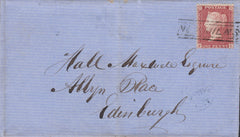 POSTAGE
Hall Maxwell Esquire
Albyn Place
Edinburgh